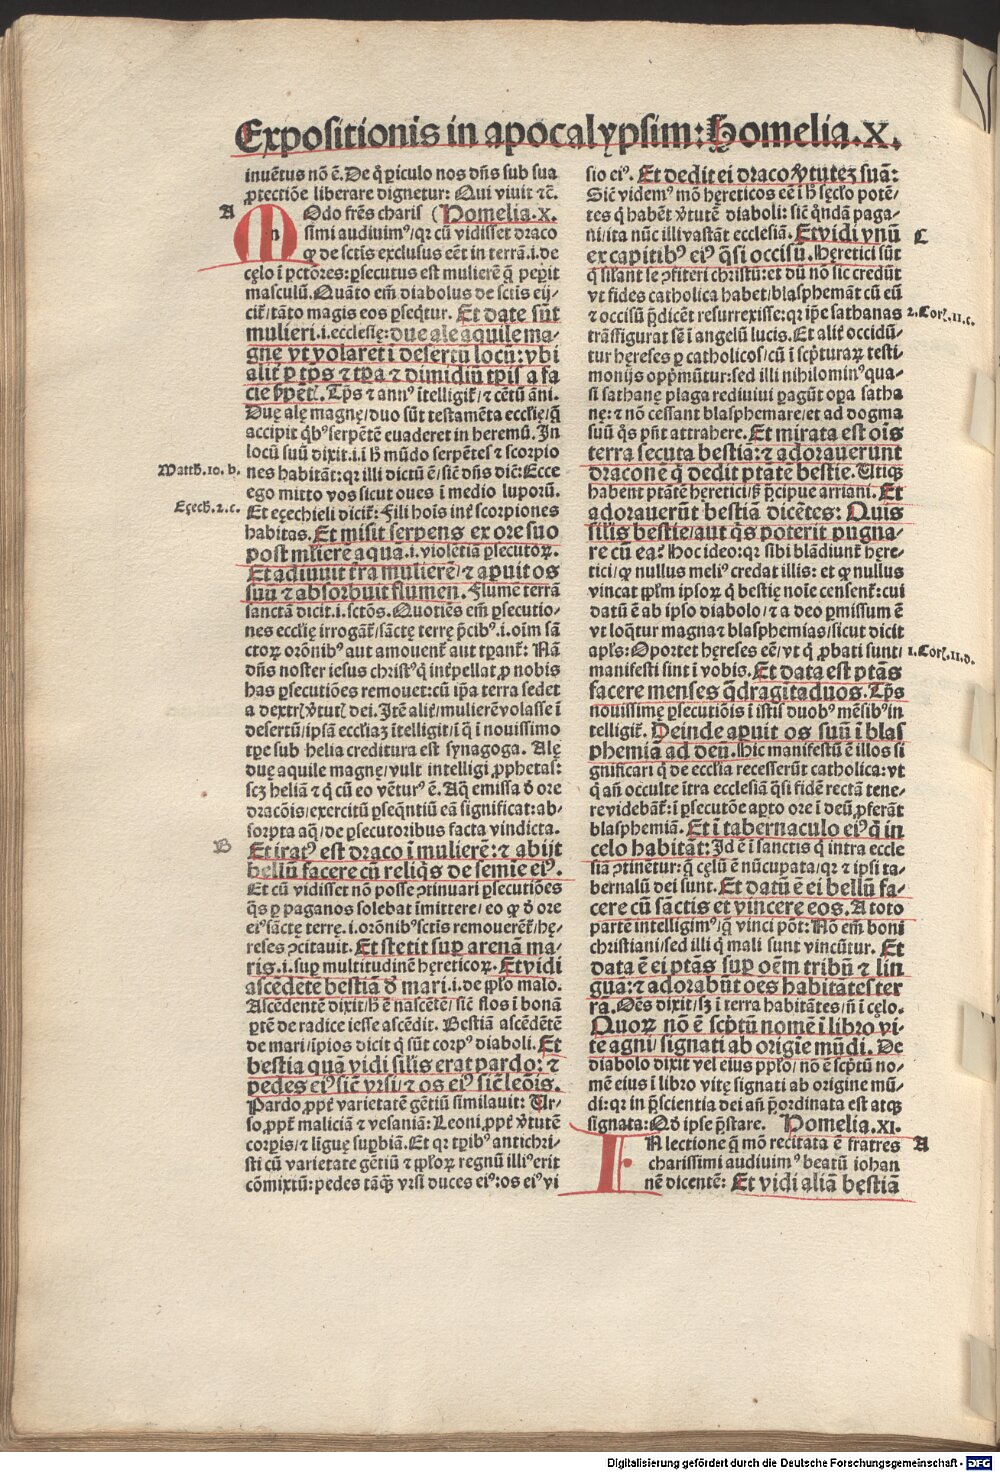 Expositionis in apocalypsim: Homelia.X.
inuẽtus nõ ẽ. De q̃ ꝑiculo nos dñs sub sua
ꝓtectiõe liberare dignetur: Qui viuit ⁊c̃.
A
MOdo frẽs chariſ (Homelia.x.
simi audiuimꝰ/qꝛ cũ vidisset draco
ꝙ de sctis exclusus eẽt in terrã.i. de
cęlo ĩ pctõres: ꝑsecutus est mulierẽ q̃ peꝑit
masculũ. Quãto em̃ diabolus de sctis eij-
cit᷑/ tãto magis eos ꝑseq̃tur. Et date sũt
mulieri.i. ecclesię: due ale aquile ma-
gnę vt volaret ĩ desertũ locũ: vbi
alit᷑ ꝑ tp̃s ⁊ tp̃a ⁊ dimidiũ tp̃is a fa
cie ẜpẽt. Tp̃s ⁊ annꝰ ĩtelligit᷑/ ⁊ cẽtũ ãni.
Duę alę magnę/ duo sũt testamẽta ecclię/ q̃
accipit q̃bꝰ serpẽtẽ euaderet in heremũ. In
locũ suũ dixit.i. ĩ h̃ mũdo serpẽtes ⁊ scorpio
Matth̃.10. b.
nes habitãt: qꝛ illi dictũ ẽ/ sic̃ dñs dic̃: Ecce
ego mitto vos sicut oues ĩ medio luporũ.
Ezech̃.2.c.
Et ezechieli dicit᷑: Fili hoĩs int᷑ scorpiones
habitas. Et misit serpens ex ore suo
post mĩierẽ aquã.i. violẽtiã ꝑsecutoꝝ.
Et adiuuit t̃ra mulierẽ/ ⁊ aꝑuit os
suũ ⁊ absorbuit flumen. Flume terrã
sanctã dicit.i. sctõs. Quotiẽs em̃ ꝑsecutio-
nes ecclię irrogãt᷑/ sãctę terrę p̃cibꝰ.i. oĩm sã
ctoꝝ orõnibꝰ aut amouent᷑ aut tꝑant᷑: Nã
dñs noster iesus christꝰ q̃ int᷑pellat ꝓ nobis
has ꝑsecutiões remouet: cũ ip̃a terra sedet
a dextrꝭ v̾tutꝭ dei. Itẽ alit᷑/ mulierẽ volasse ĩ
desertũ/ ipsã eccliaꝫ ĩtelligit/ ĩ q̃ ĩ nouissimo
tp̃e sub helia creditura est synagoga. Alę
duę aquile magnę/ vult intelligi ꝓphetas:
scꝫ heliã ⁊ q̃ cũ eo vẽturꝰ ẽ. Aq̃ emissa d̾ ore
dracõis/ exercitũ ꝑseq̃ntiũ eã significat: ab-
sorpta aq̃/ de ꝑsecutoribus facta vindicta.
B
Et iratꝰ est draco ĩ mulierẽ: ⁊ abijt
bellũ facere cũ reliq̃s de semie eiꝰ.
Et cũ vidisset nõ posse ꝯtinuari ꝑsecutiões
q̃s ꝑ paganos solebat ĩmittere/ eo ꝙ d̾ ore
eiꝰ sãctę terrę.i. orõnibꝰ sctis remouerẽt᷑/ hę-
reses ꝯcitauit. Et stetit suꝑ arenã ma-
ris.i. suꝑ multitudinẽ hęreticoꝝ. Et vidi
ascẽdẽte bestiã d̾ mari.i. de pp̃lo malo.
Ascẽdentẽ dixit/ h̃ ẽ nascẽtẽ/ sic̃ flos ĩ bonã
ꝑtẽ de radice iesse ascẽdit. Bestiã ascẽdẽtẽ
de mari/ ĩpios dicit q̃ sũt corpꝰ diaboli. Et
bestia quã vidi silis erat pardo: ⁊
pedes eiꝰ sic̃ vrsi/ ⁊ os eiꝰ sic̃ leõis.
Pardo ꝓpt᷑ varietatẽ gẽtiũ similauit: Vr-
so/ ꝓpt᷑ maliciã ⁊ vesaniã: Leoni/ ꝓpt᷑ v̾tutẽ
corꝑis/ ⁊ liguę suꝑbiã. Et qꝛ tꝑibꝰ antichri-
sti cũ varietate gẽtiũ ⁊ pp̃loꝝ regnũ illiꝰ erit
cõmixtũ: pedes tãꝙ vrsi duces eiꝰ: os eiꝰ vi
sio eiꝰ. Et dedit ei draco v̾tuteꝫ suã:
Sic̃ videmꝰ mõ hęreticos eẽ ĩ h̃ sęclo potẽ-
tes q̃ habẽt v̾tutẽ diaboli: sic̃ q̃ndã paga-
ni/ ita nũc illi vastãt ecclesiã. Et vidi vnũ
C
ex capitibꝰ eiꝰ q̃si occisũ. Hęretici sũt
q̃ silant se ꝯfiteri christũ: et dũ nõ sic credũt
vt fides catholica habet/ blasphemãt cũ eũ
⁊ occisũ p̃dicẽt resurrexisse: qꝛ ip̃e sathanas
2. Corꝭ.11.c.
trãsfigurat se ĩ angelũ lucis. Et alit᷑ occidũ-
tur hereses ꝑ catholicos/ cũ ĩ sc̃pturaꝝ testi-
monijs opp̃mũtur: sed illi nihilominꝰ qua-
si sathanę plaga rediuiui ꝑagũt oꝑa satha
nę: ⁊ nõ cessant blasphemare/ et ad dogma
suũ q̃s pñt attrahere. Et mirata est oĩs
terra secuta bestiã: ⁊ adorauerunt
draconẽ q̃ dedit ptãtẽ bestie. Vtiqꝫ
habent ptãtẽ hęretici/ sꝫ p̃cipue arriani. Et
adorauerũt bestiã dicẽtes: Quis
silis bestie/ aut q̃s poterit pugna-
re cũ ea? Hoc ideo: qꝛ sibi blãdiunt᷑ hęre-
tici/ ꝙ nullus meliꝰ credat illis: et ꝙ nullus
vincat pp̃lm ipsoꝝ q̃ bestię noĩe censent᷑: cui
datũ ẽ ab ipso diabolo/ ⁊ a deo ꝑmissum ẽ
vt loq̃tur magna ⁊ blasphemias/ sicut dicit
apl̃s: Oportet hęreses eẽ/ vt q̃ ꝓbati sunt/
1. Corꝭ.11.d.
manifesti sint ĩ vobis. Et data est ptãs
facere menses q̃dragĩta duos. Tp̃s
nouissimę ꝑsecutiõis ĩ istis duobꝰ mẽsibꝰ in
telligit᷑. Deinde aꝑuit os suũ ĩ blas
phemiã ad deũ. Hic manifestũ ẽ illos si
gnificari q̃ de ecclia recesserũt catholica: vt
q̃ añ occulte ĩtra ecclesiã q̃si fidẽ rectã tene-
re videbãt᷑: ĩ ꝑsecutõe aꝑto ore ĩ deũ ꝓferãt
blasphemiã. Et ĩ tabernaculo eiꝰ q̃ in
celo habitãt: Id ẽ ĩ sanctis q̃ intra eccle
siã ꝯtinẽtur: q̃ cęlũ ẽ nũcupata/ qꝛ ⁊ ipsi ta-
bernalũ dei sunt. Et datũ ẽ ei bellũ fa-
cere cũ sãctis et vincere eos. A toto
parte intelligimꝰ/ q̃ vinci põt: Nõ em̃ boni
christiani/ sed illi q̃ mali sunt vincũtur. Et
data ẽ ei ptãs suꝑ oẽm tribũ ⁊ lin
guã: ⁊ adorabũt oẽs habitãtes ter
rã. Oẽs dixit/ sꝫ ĩ terra habitãtes/ ñ ĩ cęlo.
Quoꝝ nõ ẽ sc̃ptũ nomẽ ĩ libro vi-
te agni/ signati ab origĩe mũdi. De
diabolo dixit vel eius pp̃lo/ nõ ẽ sc̃ptũ no-
mẽ eius ĩ libro vitę signati ab origine mũ-
di: qꝛ in p̃scientia dei añ p̃ordinata est atqꝫ
signata: Qd̾ ipse p̃stare. Homelia.XI.
IN lectione q̃ mõ recitata ẽ fratres
A
charissimi audiuimꝰ beatũ iohan
nẽ dicentẽ: Et vidi aliã bęstiã
Digitalisierung gefördert durch die Deutsche Forschungsgemeinschaft - DFG